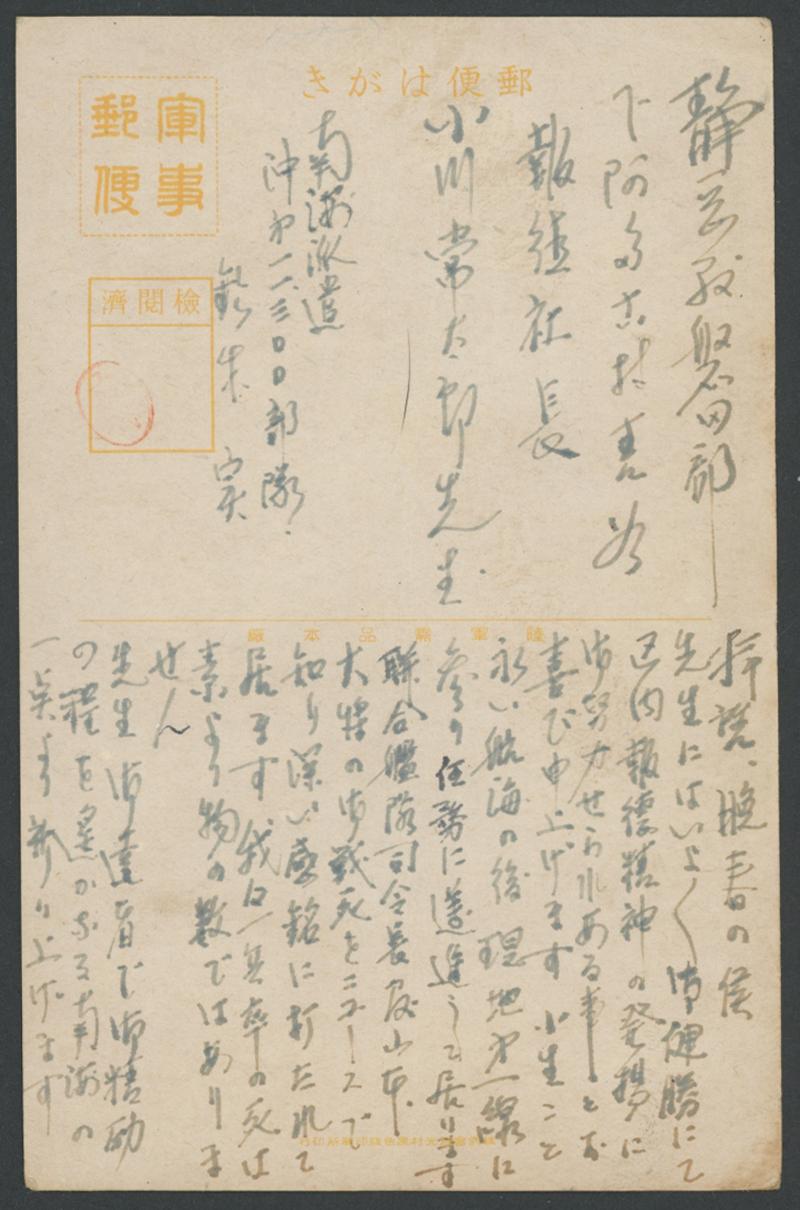 郵便はがき
軍事
郵便
検閲済
静岡県磐田郡
報徳社長
小川常太郎先生
南海派遣
沖第一二三〇〇部隊
鈴木 実
陸軍需品本廠
拝啓、晩春の候
先生にはいよ〱御健勝にて
区内報徳精神の発揚に
御努力せられある事とお
喜び申上げます 小生こと
永い航海の後現地第一線に
参り任務に邁進して居ります
聯合艦隊司令長官山本
大将の御戦死をニュースで
知り深い感銘に打たれて
居ます 我々一兵卒の死は
素より物の数ではありま
せん
先生御達者で御精励
の程を遥かなる南海の
一点より祈り上げます